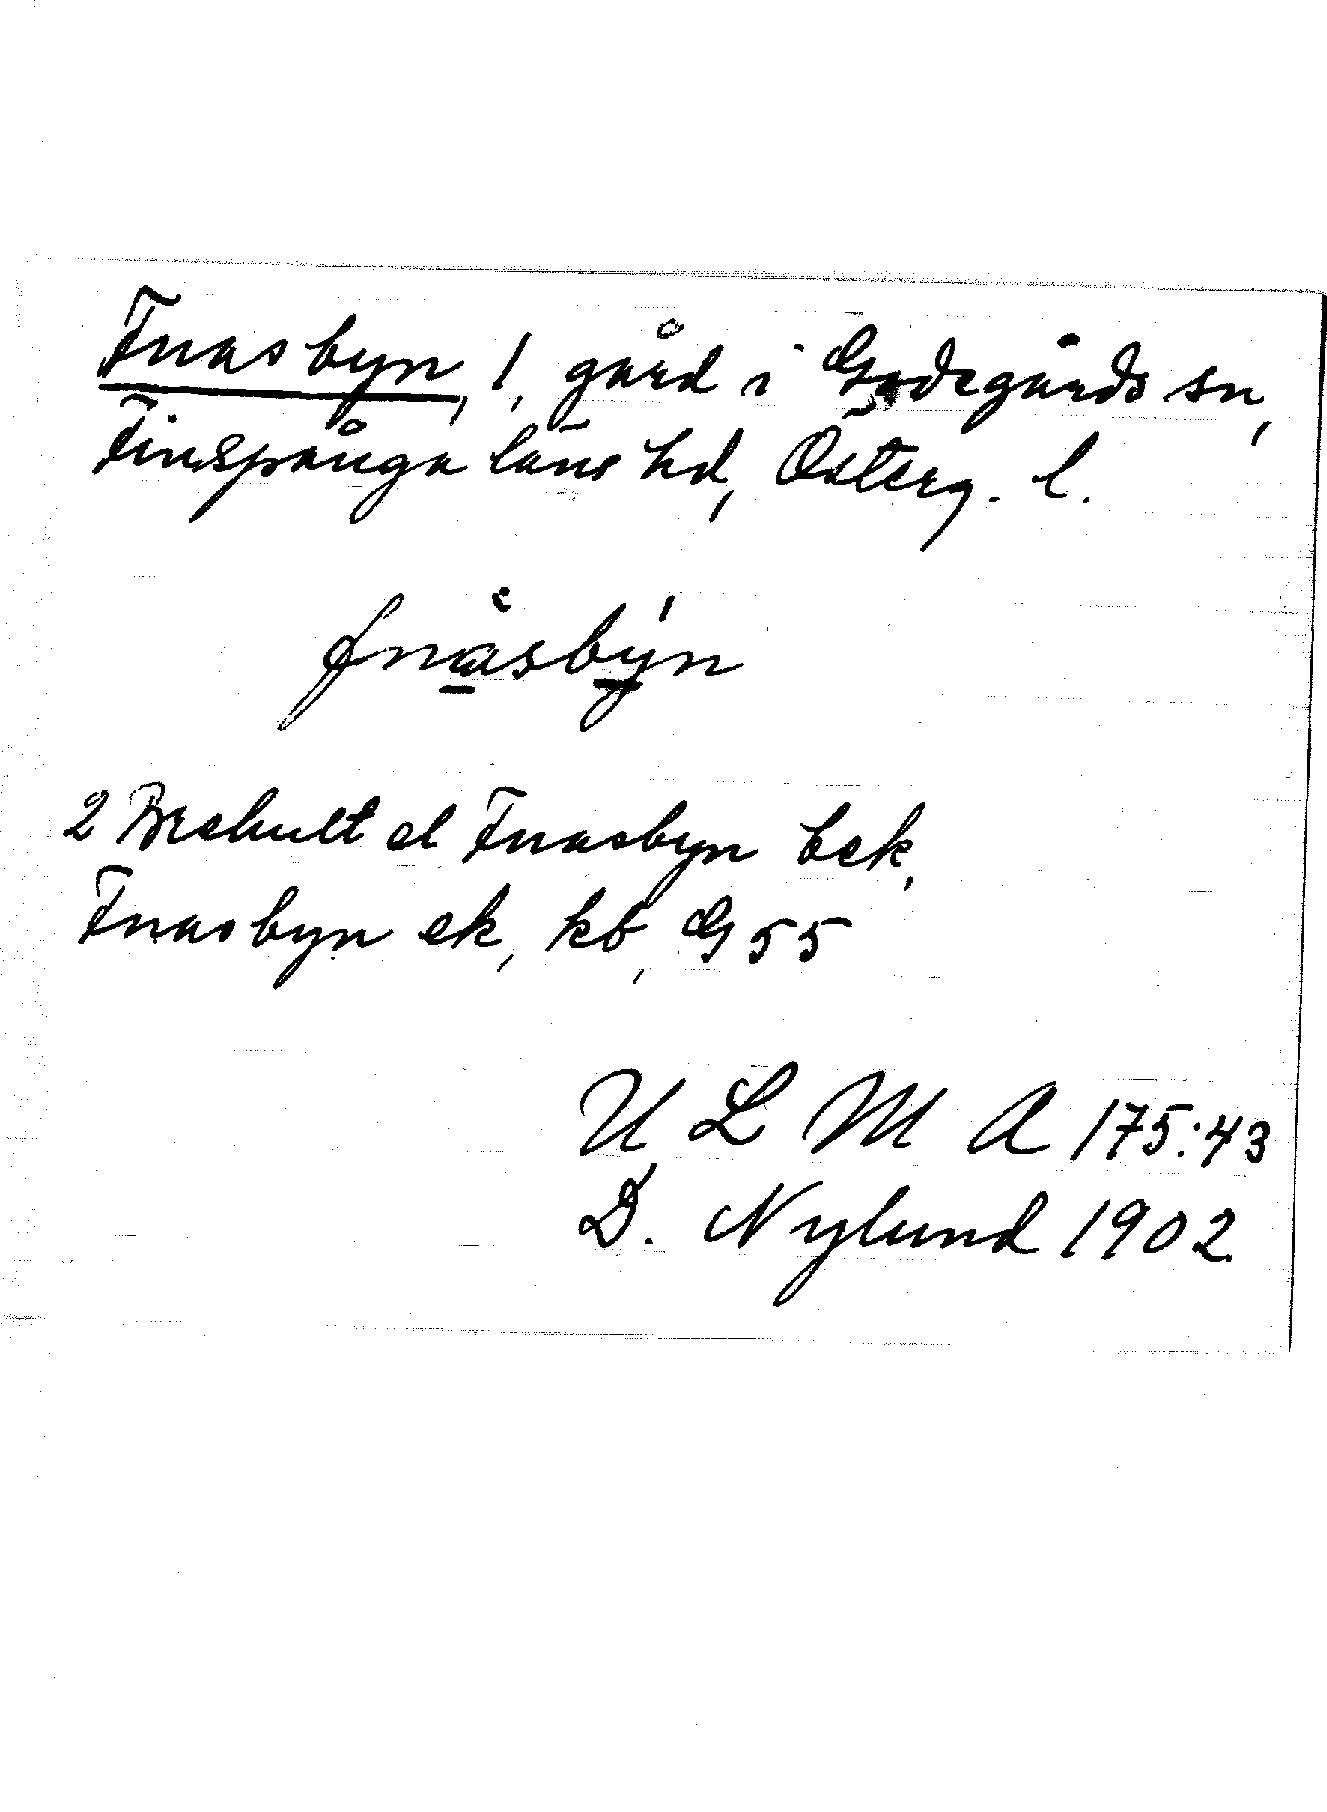 Fnasbyn, 1, gård i Godegårds sn,
Finspånga läns hd, Österg. l.
fnàsbýn
2 Brehult el Fnasbyn bek,
Fnasbyn ek, kb, G 55
U L M A 175:43
D. Nylund 1902.